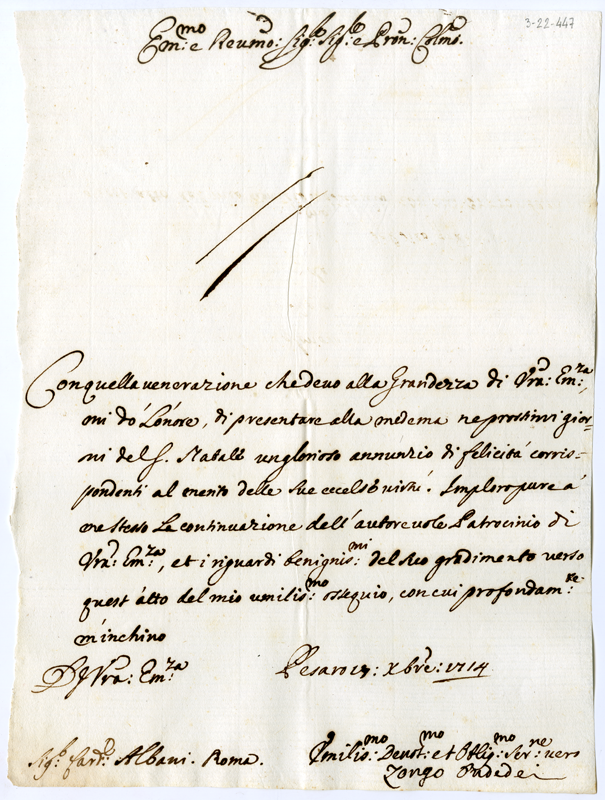 3-22-447
Em:mo e Reumo: Sig:r Sig:r e Pron: Colmo.
Con quella venerazione che devo alla Grandezza di Vra: Em:za,
mi dò l'onore, di presentare alla medema ne prossimi gior-
ni del S. Natale un glorioso annunzio di felicità corris-
pondenti al merito delle Sue eccelse virtù. Imploro pure à
me stesso la continuazione dell'autorevole Patrocinio di
Vra: Em:za, et i riguardi benignis:mi del Suo gradimento verso
quest'atto del mio umilis:mo ossequio, con cui profondam:te
m'inchino
Di Vra: Em:za
Pesaro Xbre: 1714
Sig:r Card: Albani. Roma.
Umilis:mo Devot:mo et Oblig:mo Ser:ne vero
Zongo Ondedei